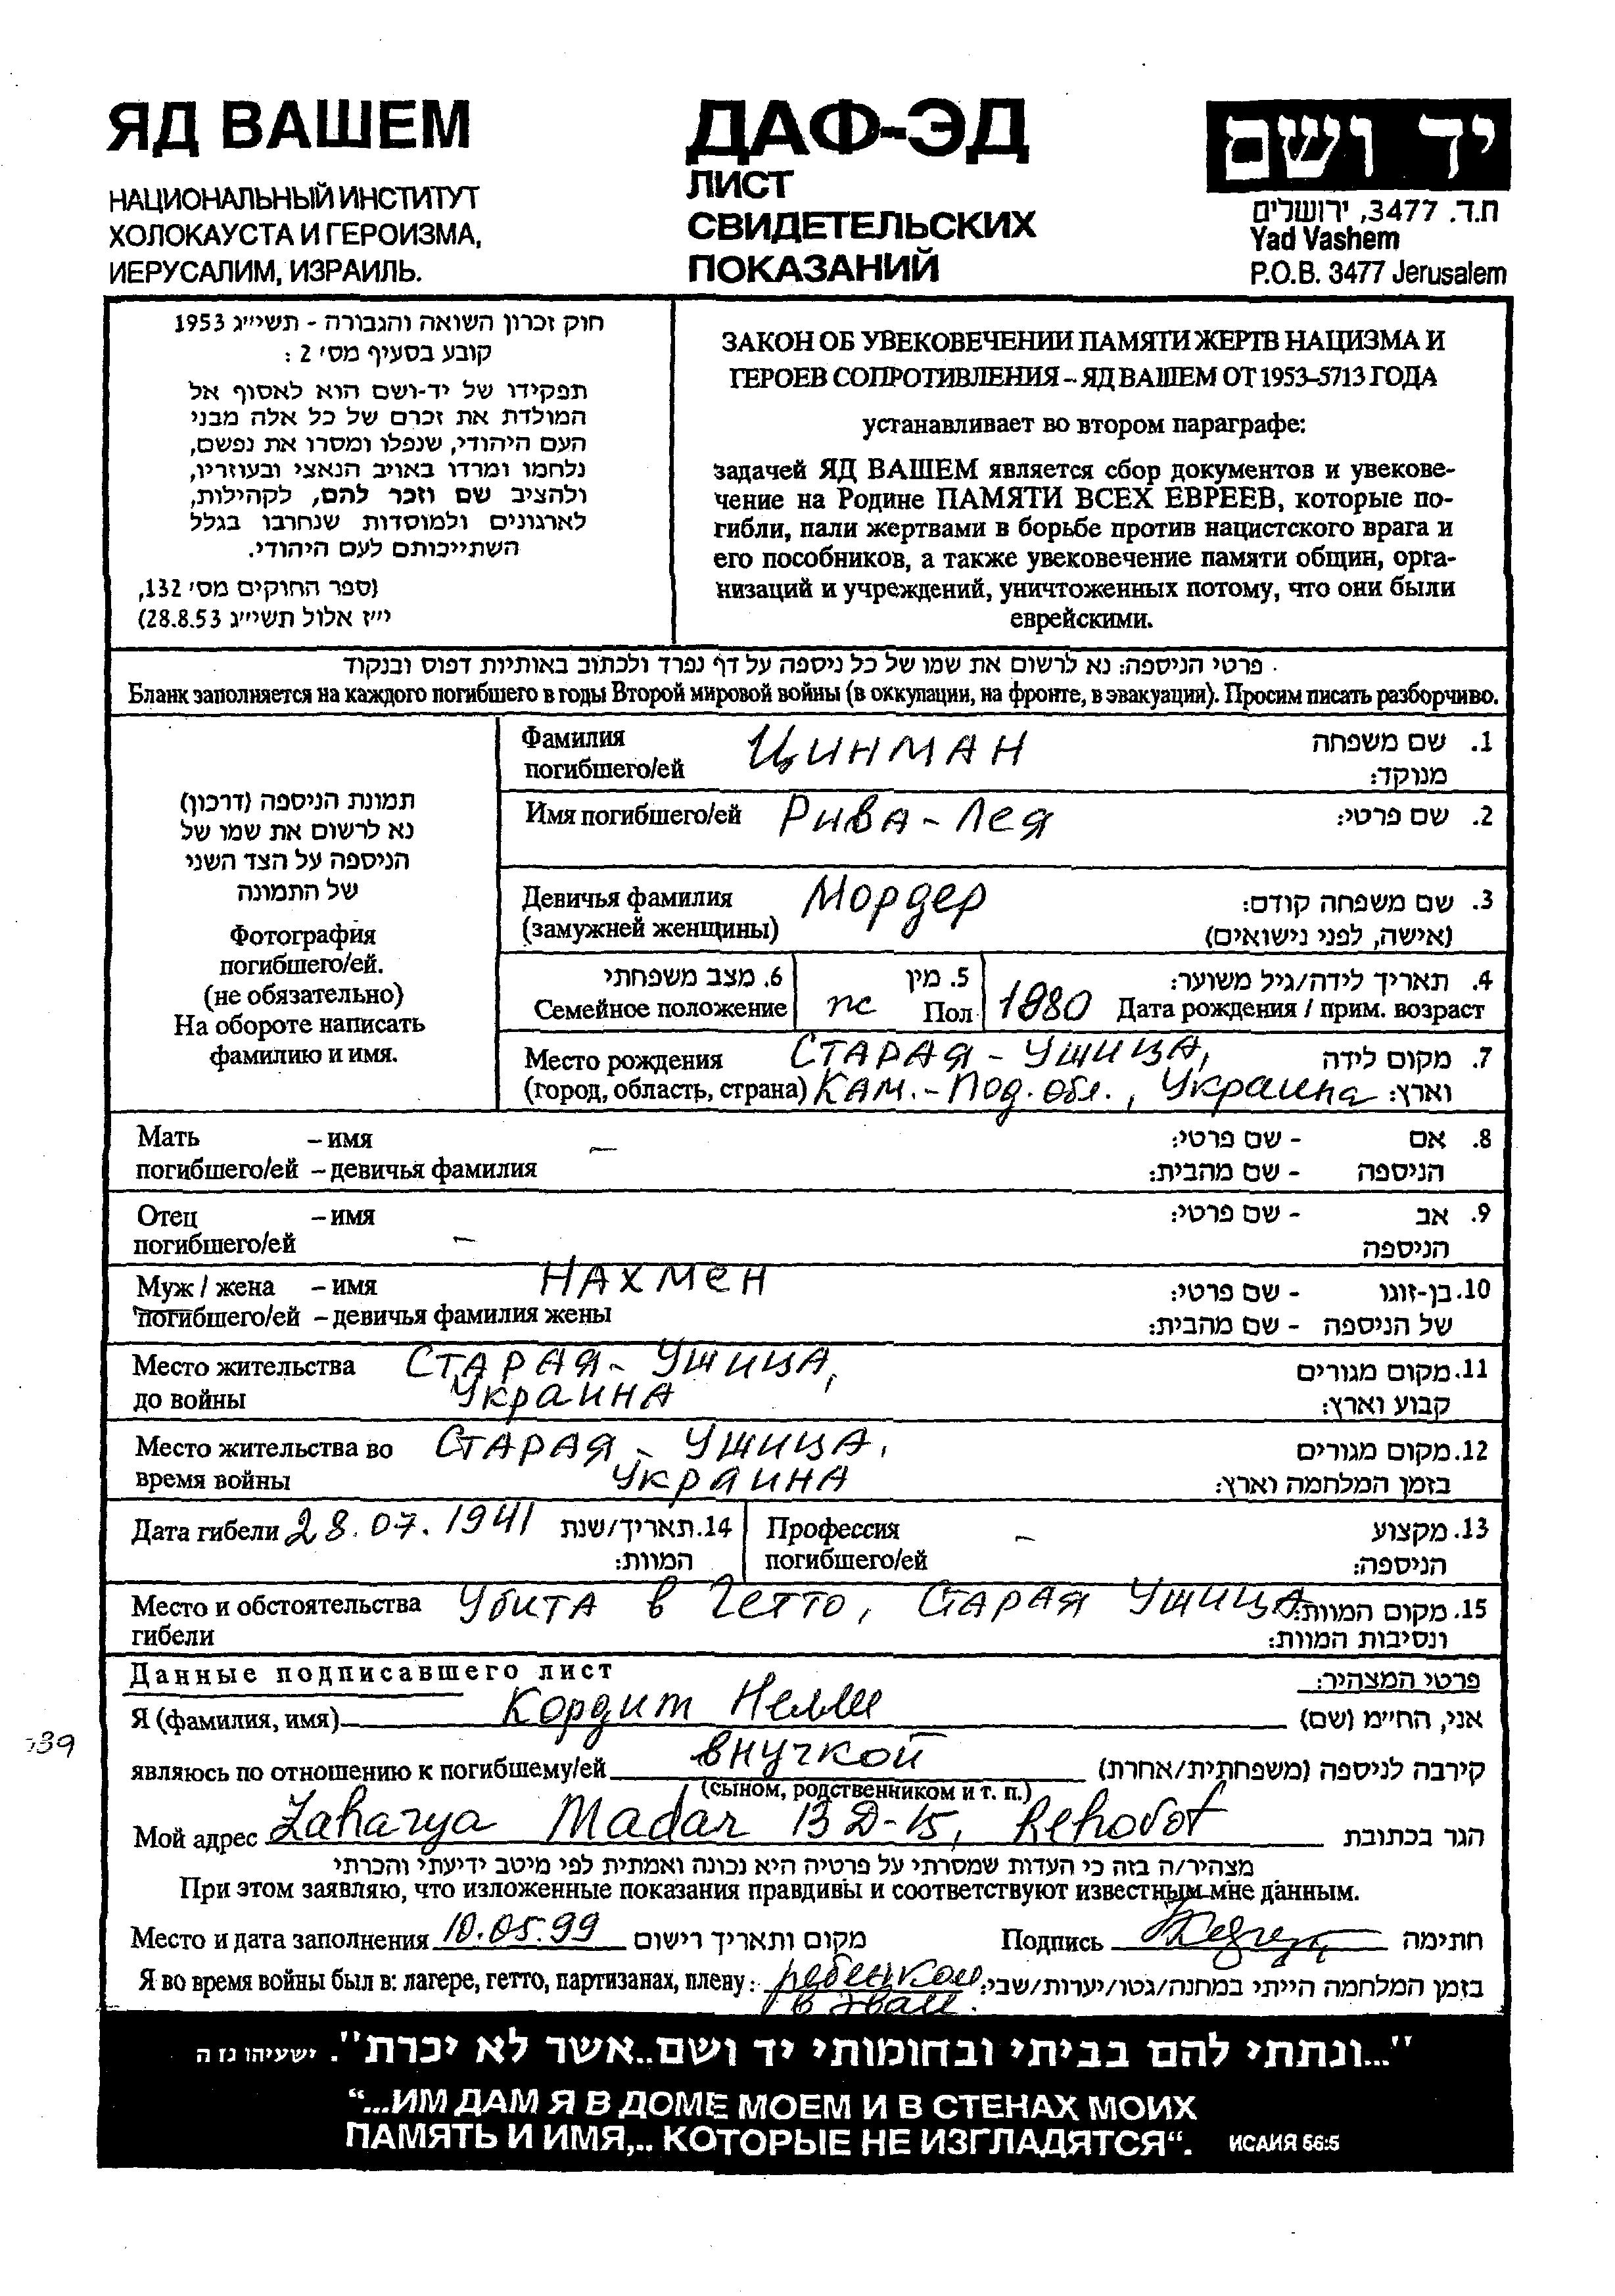 ЯД ВАШЕМ
НАЦИОНАЛЬНЫЙ ИНСТИТУТ
ХОЛОКАУСТА И ГЕРОИЗМА,
ИЕРУСАЛИМ, ИЗРАИЛЬ.
ДАФ-ЭД
ЛИСТ
СВИДЕТЕЛЬСКИХ
ПОКАЗАНИЙ
יד ושם
ת.ד. 3477, ירושלים
Yad Vashem
P.O.B. 3477 Jerusalem
חוק זכרון השואה והגבורה - תשי״ג 1953
קובע בסעיף מס׳ 2 :
תפקידו של יד-ושם הוא לאסוף אל
המולדת את זכרם של כל אלה מבני
העם היהודי, שנפלו ומסרו את נפשם,
נלחמו ומרדו באויב הנאצי ובעוזריו,
ולהציב שם וזכר להם, לקהילות,
לארגונים ולמוסדות שנחרבו בגלל
השתייכותם לעם היהודי.
(ספר החוקים מס׳ 132,
י״ז אלול תשי״ג 28.8.53)
ЗАКОН ОБ УВЕКОВЕЧЕНИИ ПАМЯТИ ЖЕРТВ НАЦИЗМА И
ГЕРОЕВ СОПРОТИВЛЕНИЯ – ЯД ВАШЕМ ОТ 1953–5713 ГОДА
устанавливает во втором параграфе:
задачей ЯД ВАШЕМ является сбор документов и увекове-
чение на Родине ПАМЯТИ ВСЕХ ЕВРЕЕВ, которые по-
гибли, пали жертвами в борьбе против нацистского врага и
его пособников, а также увековечение памяти общин, орга-
низаций и учреждений, уничтоженных потому, что они были
еврейскими.
פרטי הניספה: נא לרשום את שמו של כל ניספה על דף נפרד ולכתוב באותיות דפוס ובנקוד
Бланк заполняется на каждого погибшего в годы Второй мировой войны (в оккупации, на фронте, в эвакуации). Просим писать разборчиво.
תמונת הניספה (דרכון)
נא לרשום את שמו של
הניספה על הצד השני
של התמונה
Фотография
погибшего/ей.
(не обязательно)
На обороте написать
фамилию и имя.
Фамилия ЦИНМАН 1. שם משפחה
погибшего/ей מנוקד:
Имя погибшего/ей Рива-Лея 2. שם פרטי:
Девичья фамилия Мордер 3. שם משפחה קודם:
(замужней женщины) (אישה, לפני נישואים)
6. מצב משפחתי 5. מין 4. תאריך לידה/גיל משוער:
Семейное положение Пол 1880 Дата рождения / прим. возраст
Место рождения СТАРАЯ-УШИЦА, 7. מקום לידה
(город, область, страна) КАМ.-Под. обл., Украина וארץ:
Мать – имя – 8. אם - שם פרטי:
погибшего/ей – девичья фамилия הניספה - שם מהבית:
Отец – имя 9. אב - שם פרטי:
погибшего/ей – הניספה
Муж / жена – имя НАХМЕН 10. בן-זוגו - שם פרטי:
погибшего/ей – девичья фамилия жены של הניספה - שם מהבית:
Место жительства СТАРАЯ-УШИЦА, 11. מקום מגורים
до войны УКРАИНА קבוע וארץ:
Место жительства во СТАРАЯ-УШИЦА, 12. מקום מגורים
время войны УКРАИНА בזמן המלחמה וארץ:
Дата гибели 28.07.1941 14. תאריך/שנת Профессия – 13. מקצוע
המוות: погибшего/ей הניספה:
Место и обстоятельства Убита в Гетто, СТАРАЯ УШИЦА 15. מקום המוות:
гибели ונסיבות המוות:
Данные подписавшего лист פרטי המצהיר:
Я (фамилия, имя) Кордит Нелли אני, החי״מ (שם)
являюсь по отношению к погибшему/ей внучкой קירבה לניספה (משפחתית/אחרת)
(сыном, родственником и т. п.)
Мой адрес Zaharya Madar 13 D-15, Rehovot הגר בכתובת
מצהיר/ה בזה כי העדות שמסרתי על פרטיה היא נכונה ואמתית לפי מיטב ידיעתי והכרתי
При этом заявляю, что изложенные показания правдивы и соответствуют известным мне данным.
Место и дата заполнения 10.05.99 מקום ותאריך רישום Подпись חתימה
Я во время войны был в: лагере, гетто, партизанах, плену: ребенком בזמן המלחמה הייתי במחנה/גטו/יערות/שבי:
в эвак.
"...ונתתי להם בביתי ובחומותי יד ושם..אשר לא יכרת". ישעיהו נו ה
“...ИМ ДАМ Я В ДОМЕ МОЕМ И В СТЕНАХ МОИХ
ПАМЯТЬ И ИМЯ,.. КОТОРЫЕ НЕ ИЗГЛАДЯТСЯ“. ИСАИЯ 56:5